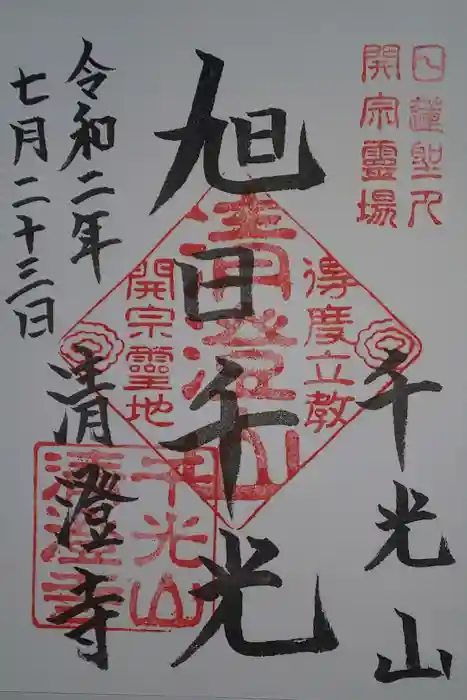 日蓮聖人
開宗靈場
千光山
旭日千光
得度立教
清澄山
開宗靈地
清澄寺
千光山
清澄寺
令和二年
七月二十三日